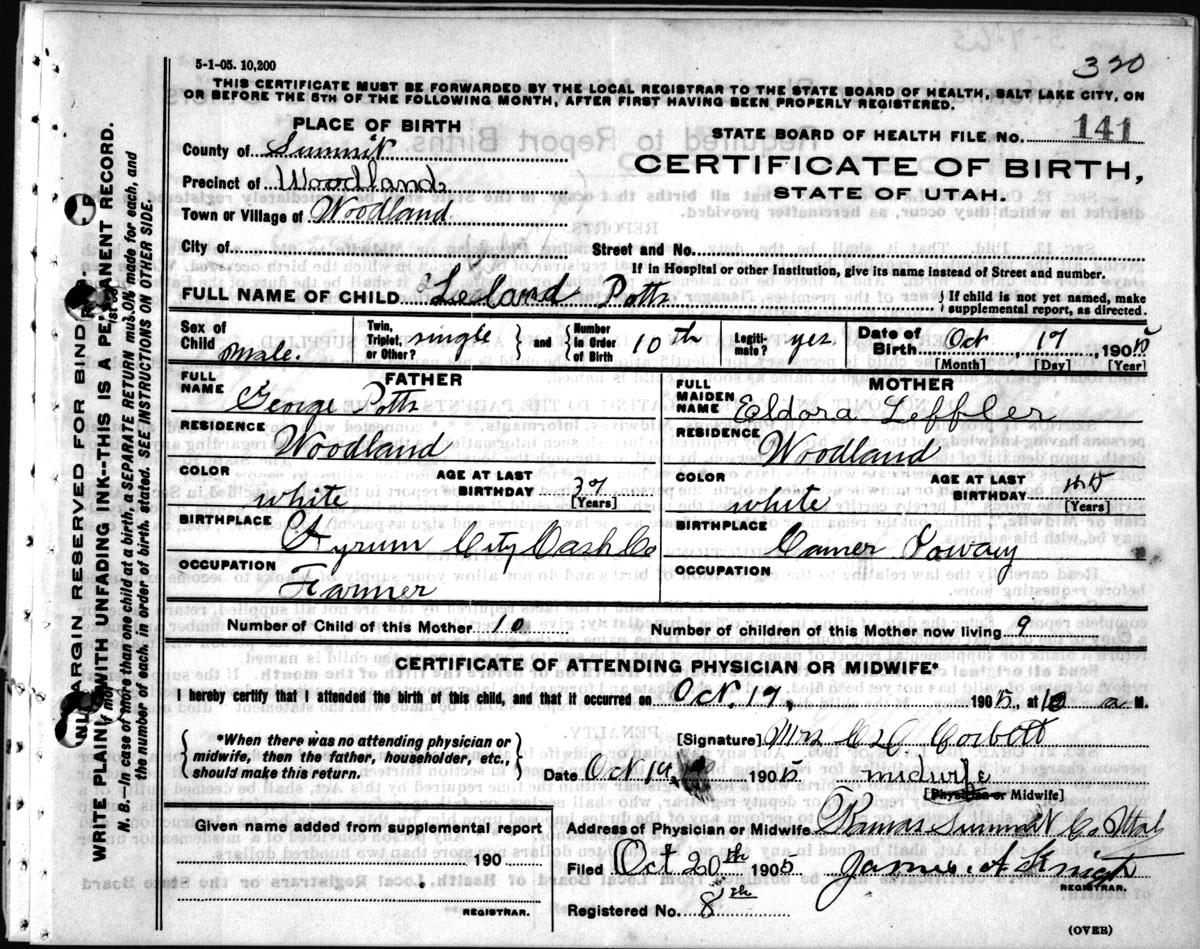 320
5-1-05. 10,200
THIS CERTIFICATE MUST BE FORWARDED BY THE LOCAL REGISTRAR TO THE STATE BOARD OF HEALTH, SALT LAKE CITY, ON
OR BEFORE THE 5TH OF THE FOLLOWING MONTH, AFTER FIRST HAVING BEEN PROPERLY REGISTERED.
PLACE OF BIRTH
STATE BOARD OF HEALTH FILE No. 141
County of Summit
CERTIFICATE OF BIRTH,
Precinct of Woodland
STATE OF UTAH.
Town or Village of Woodland
City of
Street and No.
If in Hospital or other Institution, give its name instead of Street and number.
FULL NAME OF CHILD Leland Potts
{ If child is not yet named, make supplemental report, as directed.
Sex of Child male. Twin, Triplet, or Other? single } and { Number in Order of Birth 10th Legiti-mate? yes Date of Birth Oct 17, 1905
[Month] [Day] [Year]
FATHER
MOTHER
FULL NAME George Potts
FULL MAIDEN NAME Eldora Leffler
RESIDENCE Woodland
RESIDENCE Woodland
COLOR white AGE AT LAST BIRTHDAY 37 [Years]
COLOR white AGE AT LAST BIRTHDAY [Years]
BIRTHPLACE Hyrum City Cash Co
BIRTHPLACE
OCCUPATION Farmer
OCCUPATION
Number of Child of this Mother 10
Number of children of this Mother now living 9
CERTIFICATE OF ATTENDING PHYSICIAN OR MIDWIFE*
I hereby certify that I attended the birth of this child, and that it occurred on Oct. 17, 1905, at 10 a M.
{ *When there was no attending physician or midwife, then the father, householder, etc., should make this return. }
[Signature] Mrs Corbett
Date Oct 1905 midwife
[Physician or Midwife]
Given name added from supplemental report
Address of Physician or Midwife Kamas Summit Co Utah
190
Filed Oct 20th 1905 James A Knight
REGISTRAR.
REGISTRAR.
Registered No. 8th
(OVER)
MARGIN RESERVED FOR BINDING
WRITE PLAINLY WITH UNFADING INK--THIS IS A PERMANENT RECORD.
N. B.--In case of more than one child at a birth, a SEPARATE RETURN must be made for each, and
the number of each, in order of birth, stated. SEE INSTRUCTIONS ON OTHER SIDE.